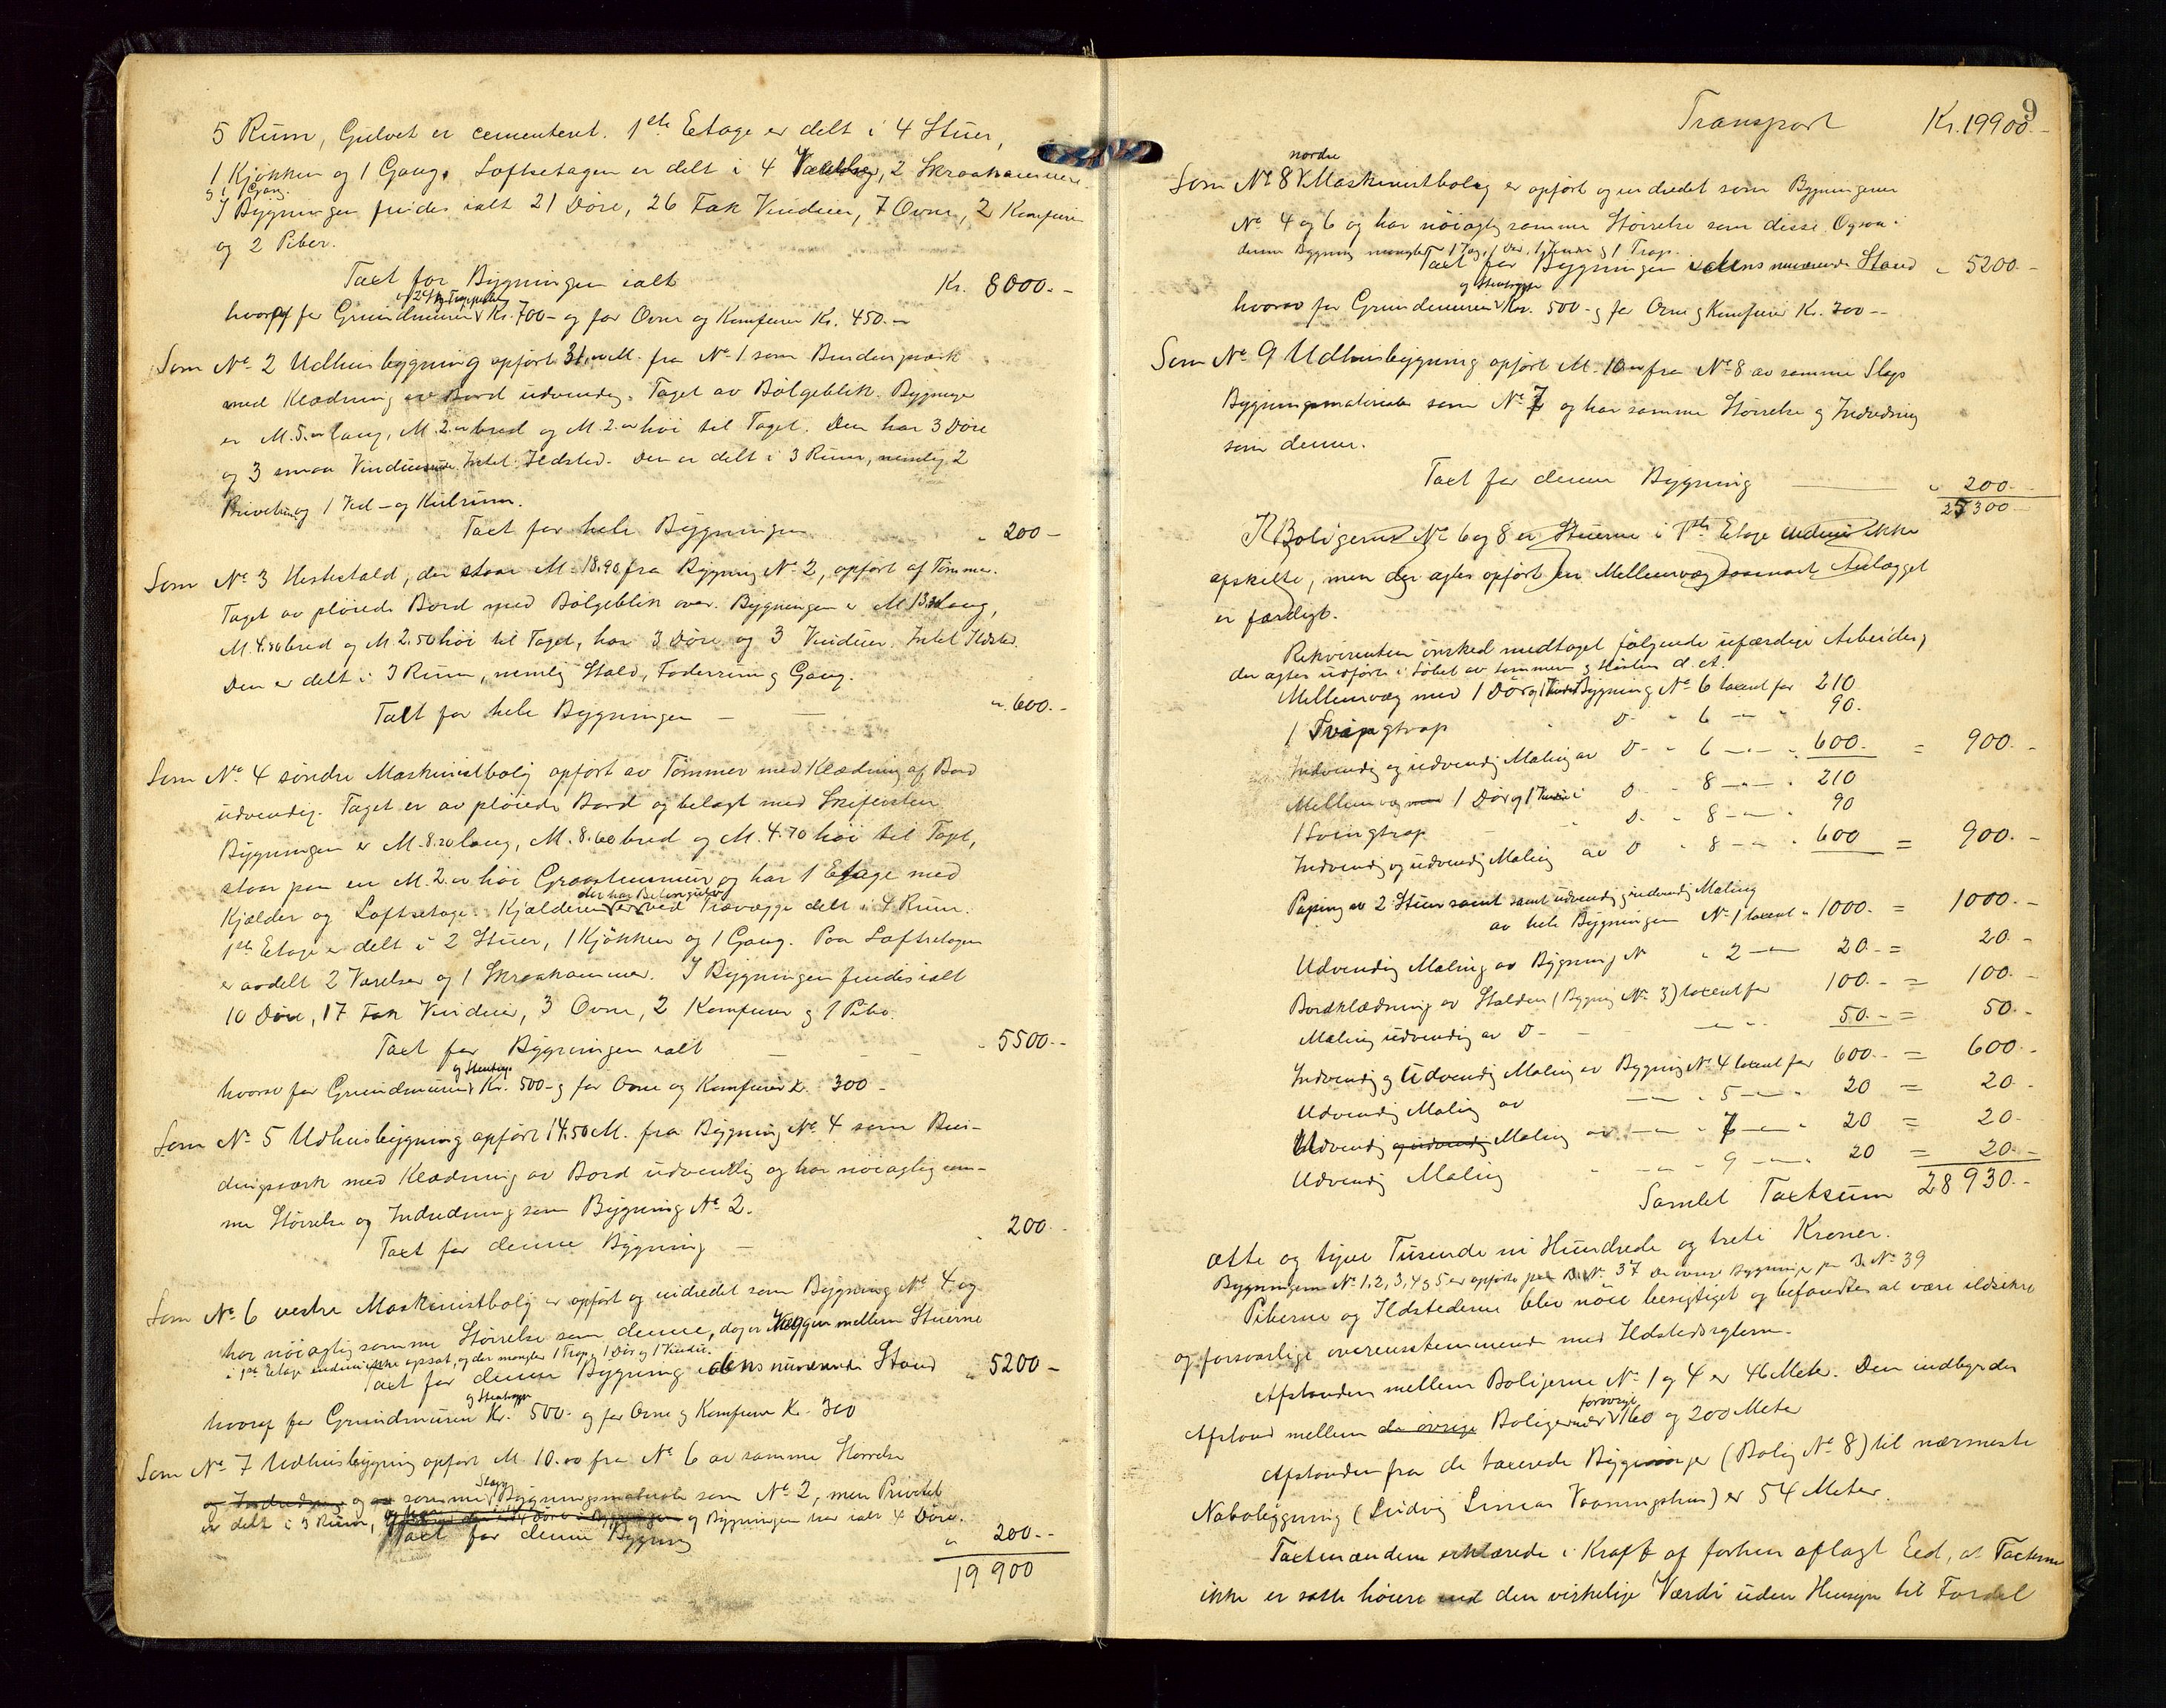 5 Rum, Gulvet er cementeret. 1ste Etage er delt i 4 Stuer,
1 Kjøkken og 1 Gang. Loftsetagen er delt i 4 Værelser, 2 Skraakammere
og 1 Gang.
I Bygningen findes ialt 21 Døre, 26 Fak Vinduer, 7 Ovne, 2 Komfurer
og 2 Piber.
Taxt for Bygningen ialt Kr. 8000.-
hvoraf for Grundmuren Kr. 700- og for Ovne og Komfurer Kr. 450.-
Som No 2 Udhusbygning opført 31.00 M. fra No 1 som Bindingsværk
med Klædning av Bord udvendig. Taget av Bølgeblik. Bygningen
er M. 5.00 lang, M. 2.00 bred og M. 2.00 høi til Taget. Den har 3 Døre
og 3 smaa Vinduer. Intet Ildsted. Den er delt i 3 Rum, nemlig 2
Priveter og 1 Ved- og Kulrum.
Taxt for hele Bygningen " 200-
Som No 3 Hestestald, der staar M. 18.90 fra Bygning No 2, opført af Tømmer.
Taget av pløiede Bord med Bølgeblik over. Bygningen er M. 13.30 lang,
M. 4.30 bred og M. 2.50 høi til Taget, har 3 Døre og 3 Vinduer. Intet Ildsted.
Den er delt i 3 Rum, nemlig Stald, Foderrum og Gang.
Taxt for hele Bygningen - - " 600.-
Som No 4 søndre Maskinistbolig opført av Tømmer med Klædning af Bord
udvendig. Taget er av pløiede Bord og belagt med Skifersten
Bygningen er M. 8.20 lang, M. 8.60 bred og M. 4.70 høi til Taget,
staar paa en M. 2.00 høi Graastensmur og har 1 Etage med
Kjælder og Loftsetage. Kjælderen der har Betongulv er ved Trævægge delt i 4 Rum.
1ste Etage er delt i 2 Stuer, 1 Kjøkken og 1 Gang. Paa Loftsetagen
er avdelt 2 Værelser og 1 Skraakammer. I Bygningen findes ialt
10 Døre, 17 Fak Vinduer, 3 Ovne, 2 Komfurer og 1 Pibe.
Taxt for Bygningen ialt - - - " 5500.-
og Stentrappe
hvorav for Grundmuren Kr. 500- og for Ovne og Komfurer Kr. 300-
Som No 5 Udhusbygning opført 14.50 M. fra Bygning No 4 som Bin-
dingsværk med Klædning av Bord udvendig og har nøiagtig sam-
me Størrelse og Indredning som Bygning No 2.
Taxt for denne Bygning - " 200.-
Som No 6 vestre Maskinistbolig er opført og indredet som Bygning No 4 og
har nøiagtig samme Størrelse som denne, dog er Væggen mellem Stuerne
i 1ste Etage endnu ikke opsat, og der mangler 1 Trap, 1 Dør og 1 Vindu.
Taxt for denne Bygning i dens nuværende Stand " 5200-
og Stentrappe
hvoraf for Grundmuren Kr. 500- og for Ovne og Komfurer Kr. 300
Som No 7 Udhusbygning opført M. 10.00 fra No 6 av samme Størrelse
og Indredning og samme Slags Bygningsmateriale som No 2, men Privetet
er delt i 3 Rum, og Bygningen har ialt 4 Døre.
Taxt for denne Bygning " 200.-
19 900
9
Transport Kr. 19900.-
nordre
Som No 8 Maskinistbolig er opført og indredet som Bygningerne
No 4 og 6 og har nøiagtig samme Størrelse som disse. Ogsaa i
denne Bygning mangler 1 Væg, 1 Dør, 1 Vindu og 1 Trap.
Taxt for Bygningen i dens nuværende Stand " 5200.-
og Stentrappe
hvorav for Grundmuren Kr. 500- og for Ovne og Komfurer Kr. 300--
Som No 9 Udhusbygning opført M. 10.00 fra No 8 av samme Slags
Bygningsmateriale som No 7 og har samme Størrelse og Indredning
som denne.
Taxt for denne Bygning " 200.-
25300-
I Boligerne No 6 og 8 er Stuerne i 1ste Etage endnu ikke
opskilte, men der agtes opført en Mellemvæg saasnart Anlægget
er færdigt.
Rekvirenten ønsked medtaget følgende ufærdige Arbeider,
der agtes udført i Løbet av Sommeren og Høsten d. A.
Mellemvæg med 1 Dør og 1 Vindu i Bygning No 6 taxeret for 210
1 Svingtrap D- " 6 - " 90.
Indvendig og udvendig Maling av D- " 6 - " 600. = 900.-
Mellemvæg med 1 Dør og 1 Vindu i D- " 8 - " 210
1 Svingtrap D- " 8 - " 90
Indvendig og udvendig Maling av D " 8 - " 600 = 900.-
Paping av 2 Stuer samt samt udvendig og indvendig Maling
av hele Bygningen No 1 taxeret " 1000. = 1000.-
Udvendig Maling av Bygning No " 2 - 20.- = 20.-
Bordklædning av Stalden (Bygning No 3) taxeret for 100.- = 100.-
Maling udvendig av D- - " - 50.- = 50.-
Indvendig og Udvendig Maling av Bygning No 4 taxeret for 600.- = 600.-
Udvendig Maling av - " 5 - " 20 = 20.-
Udvendig og indvendig Maling av - " 7 - " 20 = 20.-
Udvendig Maling " - " 9 - " 20 = 20.-
Samlet Taxtsum 28930.-
otte og tyve Tusende ni Hundrede og treti Kroner.
Bygningerne No 1, 2, 3, 4 og 5 er opførte paa B. No 37 De øvrige Bygninger paa B. No 39
Piberne og Ildstederne blev nøie besigtiget og befandtes at være ildsikre
og forsvarlige overensstemmende med Ildstedsreglerne.
Afstanden mellem Boligerne No 1 og 4 er 46 Meter. Den indbyrdes
Afstand mellem de øvrige Boliger er forøvrigt 160 og 200 Meter
Afstanden fra de taxerede Bygninger (Bolig No 8) til nærmeste
Nabobygning (Ludvig Vaaningshus) er 54 Meter.
Taxtmændene erklærede i Kraft af forhen aflagt Eed, at Taxterne
ikke er satte høiere end den virkelige Værdi uden Hensyn til Fordel